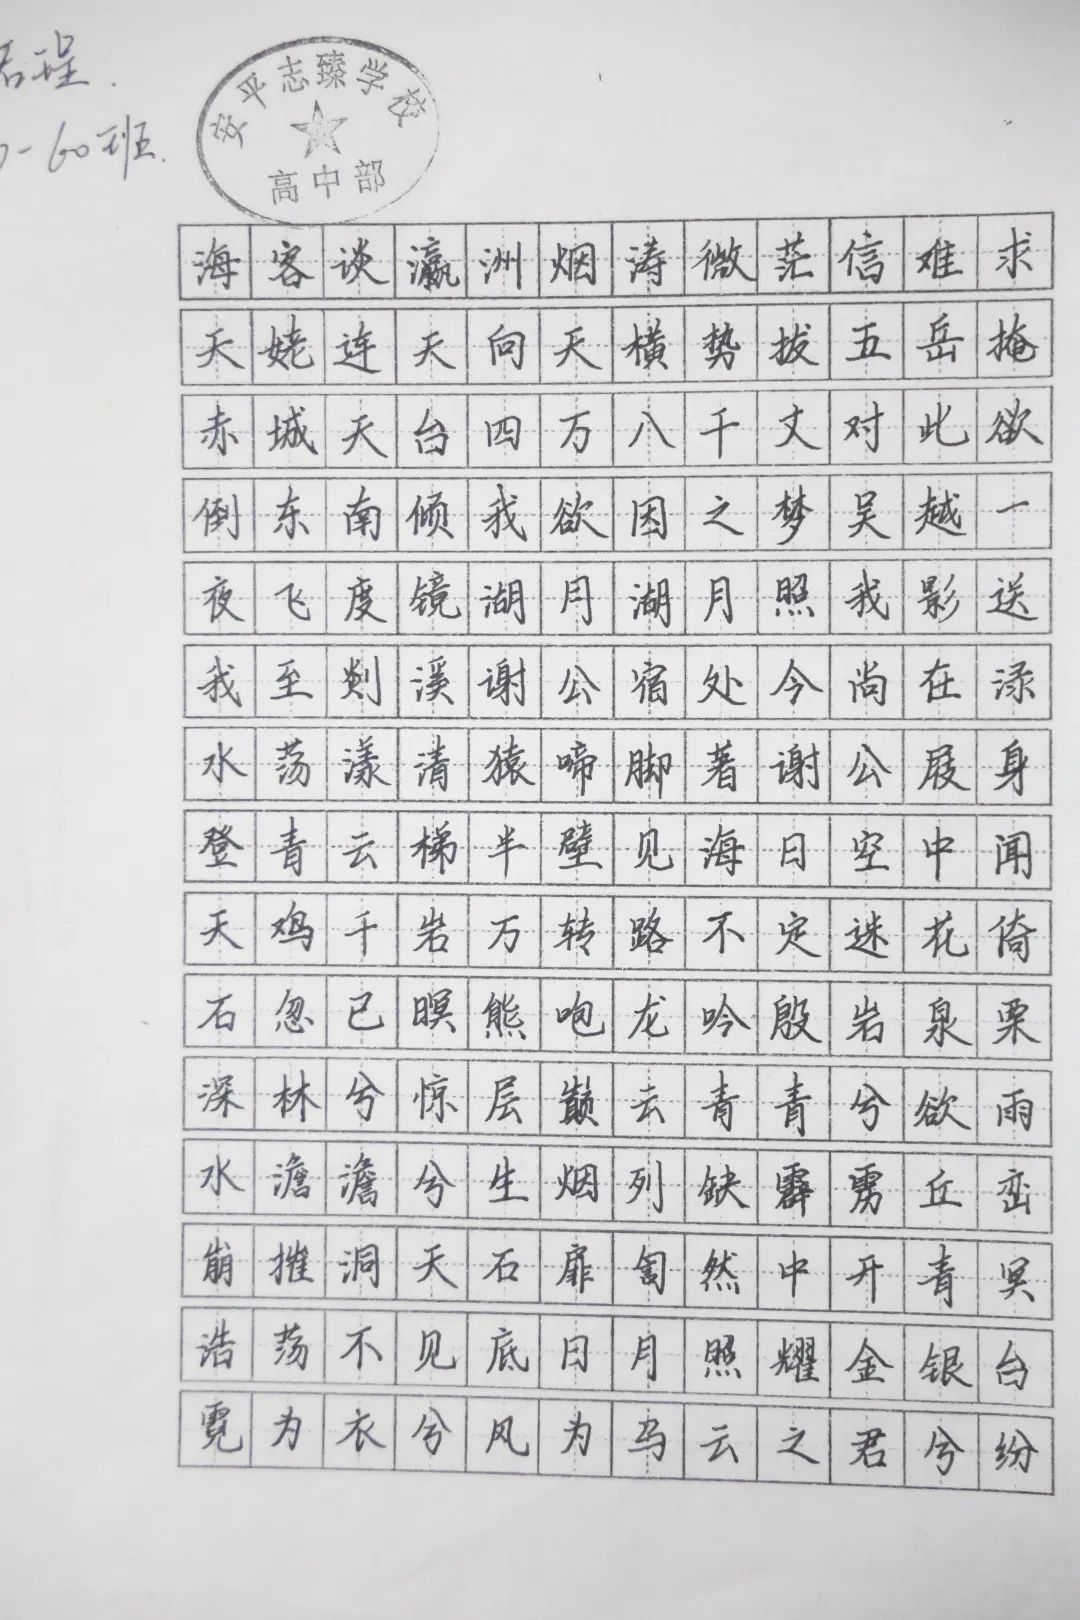 君程.
-60班.
安平志臻学校
高中部
海客谈瀛洲烟涛微茫信难求
天姥连天向天横势拔五岳掩
赤城天台四万八千丈对此欲
倒东南倾我欲因之梦吴越一
夜飞度镜湖月湖月照我影送
我至剡溪谢公宿处今尚在渌
水荡漾清猿啼脚著谢公屐身
登青云梯半壁见海日空中闻
天鸡千岩万转路不定迷花倚
石忽已暝熊咆龙吟殷岩泉栗
深林兮惊层巅云青青兮欲雨
水澹澹兮生烟列缺霹雳丘峦
崩摧洞天石扉訇然中开青冥
浩荡不见底日月照耀金银台
霓为衣兮风为马云之君兮纷